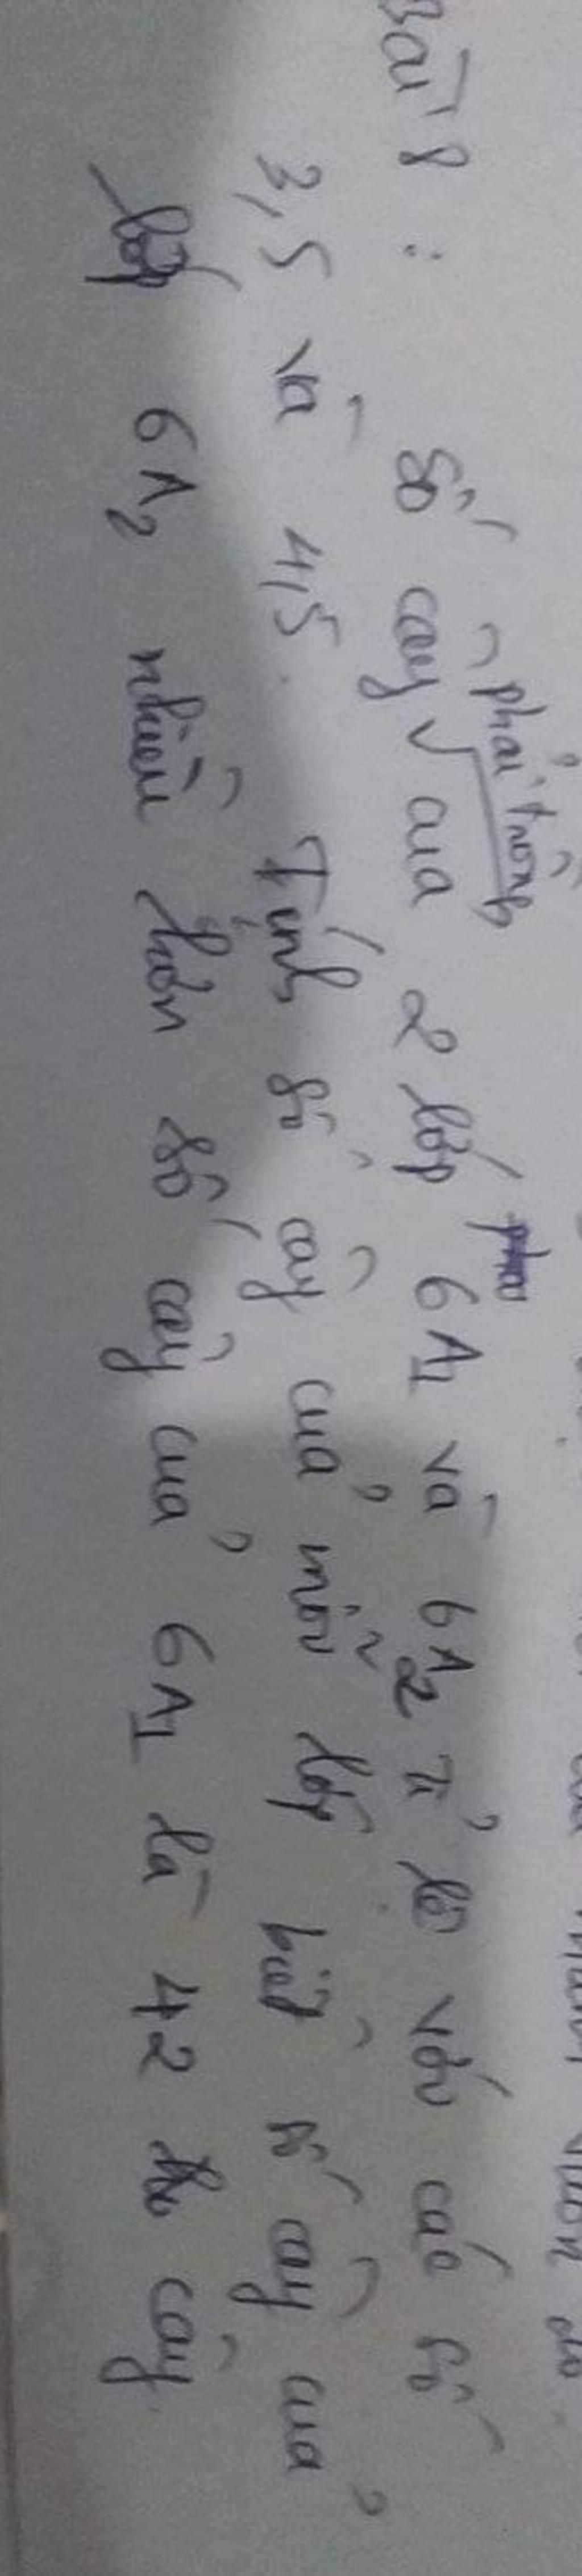 Bài 8 :
phải trồng
Số cây √ của 2 lớp 6A1 và 6A2 tỉ lệ với các số
3,5 và 4,5. Tính số cây của mỗi lớp biết số cây của
lớp 6A2 nhiều hơn số cây của 6A1 là 42 cây